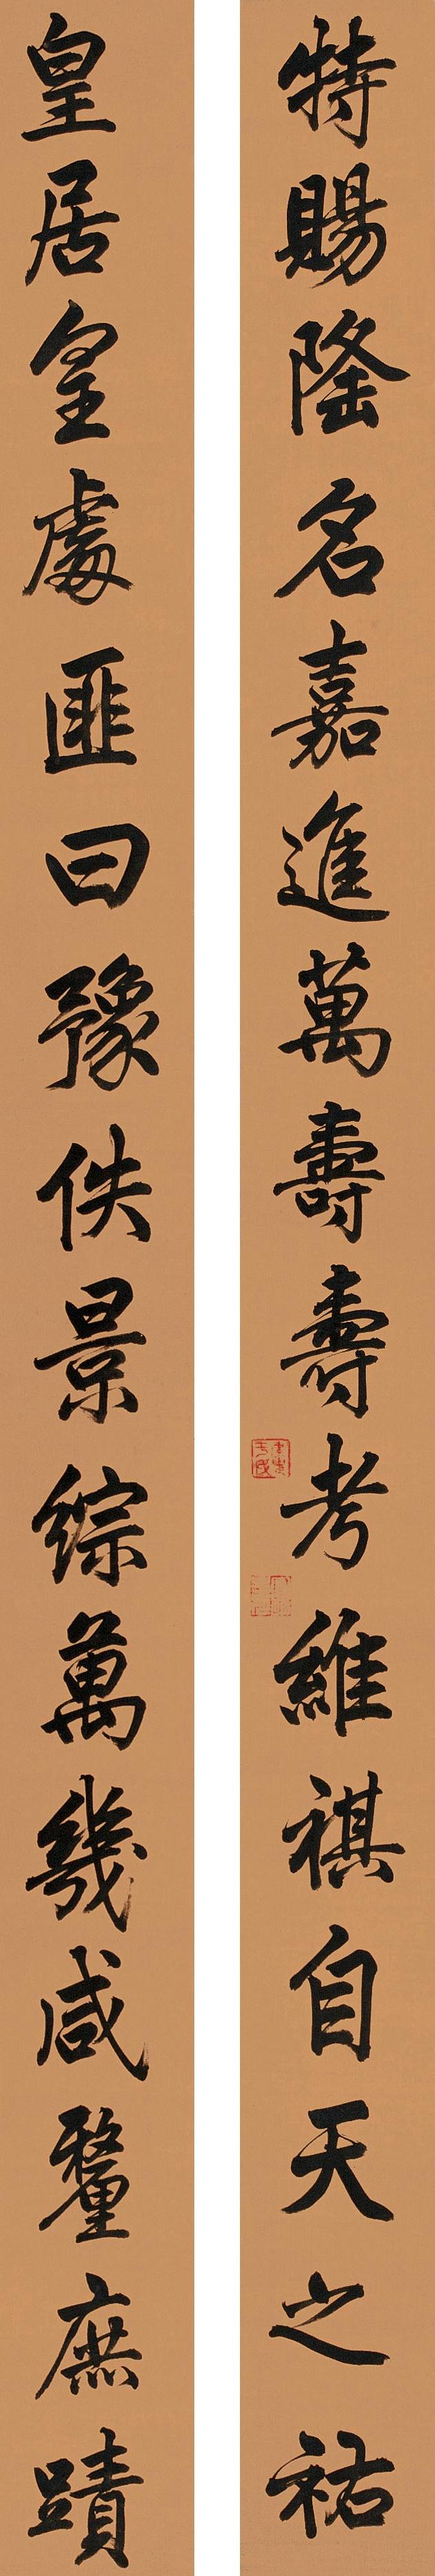 特賜隆名嘉進萬壽壽考維祺自天之祐
皇居皇處匪曰豫佚景綜萬幾咸釐庶蹟